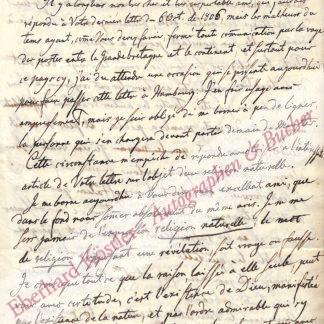 Il y a longtems mon cher et très respectable ami, que
répondu à Votre dernière lettre du 6 Oct. de 1806, mais les malheurs du
tems ayant, comme Vous devez savoir, fermé toute communication par la voye
des postes entre la Grande bretagne et le continent et surtout pour
ce pays cy, j'ai dû attendre une occasion qui se présente aujourdhui
pour faire passer cette lettre à Hambourg. J'en fais usage avec
empressement, mais je suis obligé de me borner à peu de lignes
la personne qui s'en chargera devant partir demain
Cette circonstance m'empêche de répondre
article de Votre lettre sur l'objet de naturelle.
Je me borne aujourdhui à Vous dire excellent ami, que
dans le fond nous sommes du même avis. Je ne me
sers jamais de religion naturelle, le mot
de religion une révélation, soit vraye ou fausse.
que toute que la raison laissée à elle seule peut
avec certitude, c'est l'existence de Dieu, manifestée
l'existence de la nature, et par l'ordre admirable qui y
Eberhard Köstler Autographen & Bücher